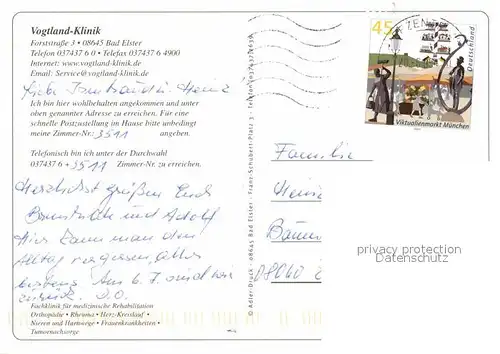 Vogtland-Klinik
Forststraße 3 • 08645 Bad Elster
Telefon 037437 6 0 • Telefax 037437 6 4900
Internet: www.vogtland-klinik.de
Email: Service@vogtland-klinik.de
Liebe Heinz
Ich bin hier wohlbehalten angekommen und unter
oben genannter Adresse zu erreichen. Für eine
schnelle Postzustellung im Hause bitte unbedingt
meine Zimmer-Nr.: 3511 angeben.
Telefonisch bin ich unter der Durchwahl
037437 6 + 3511 Zimmer-Nr. zu erreichen.
Herzlichst grüßen Euch
und Adolf
Hier kann man den
Alltag vergessen, alles
bestens. Am 6.7. sind wir
zurück. D.O.
Fachklinik für medizinische Rehabilitation
Orthopädie • Rheuma • Herz-Kreislauf •
Nieren und Harnwege • Frauenkrankheiten •
Tumornachsorge
© Adler-Druck · 08645 Bad Elster · Franz-Schubert-Platz 3 · Telefon
45
Deutschland
Viktualienmarkt München
Familie
08060
privacy protection
Datenschutz